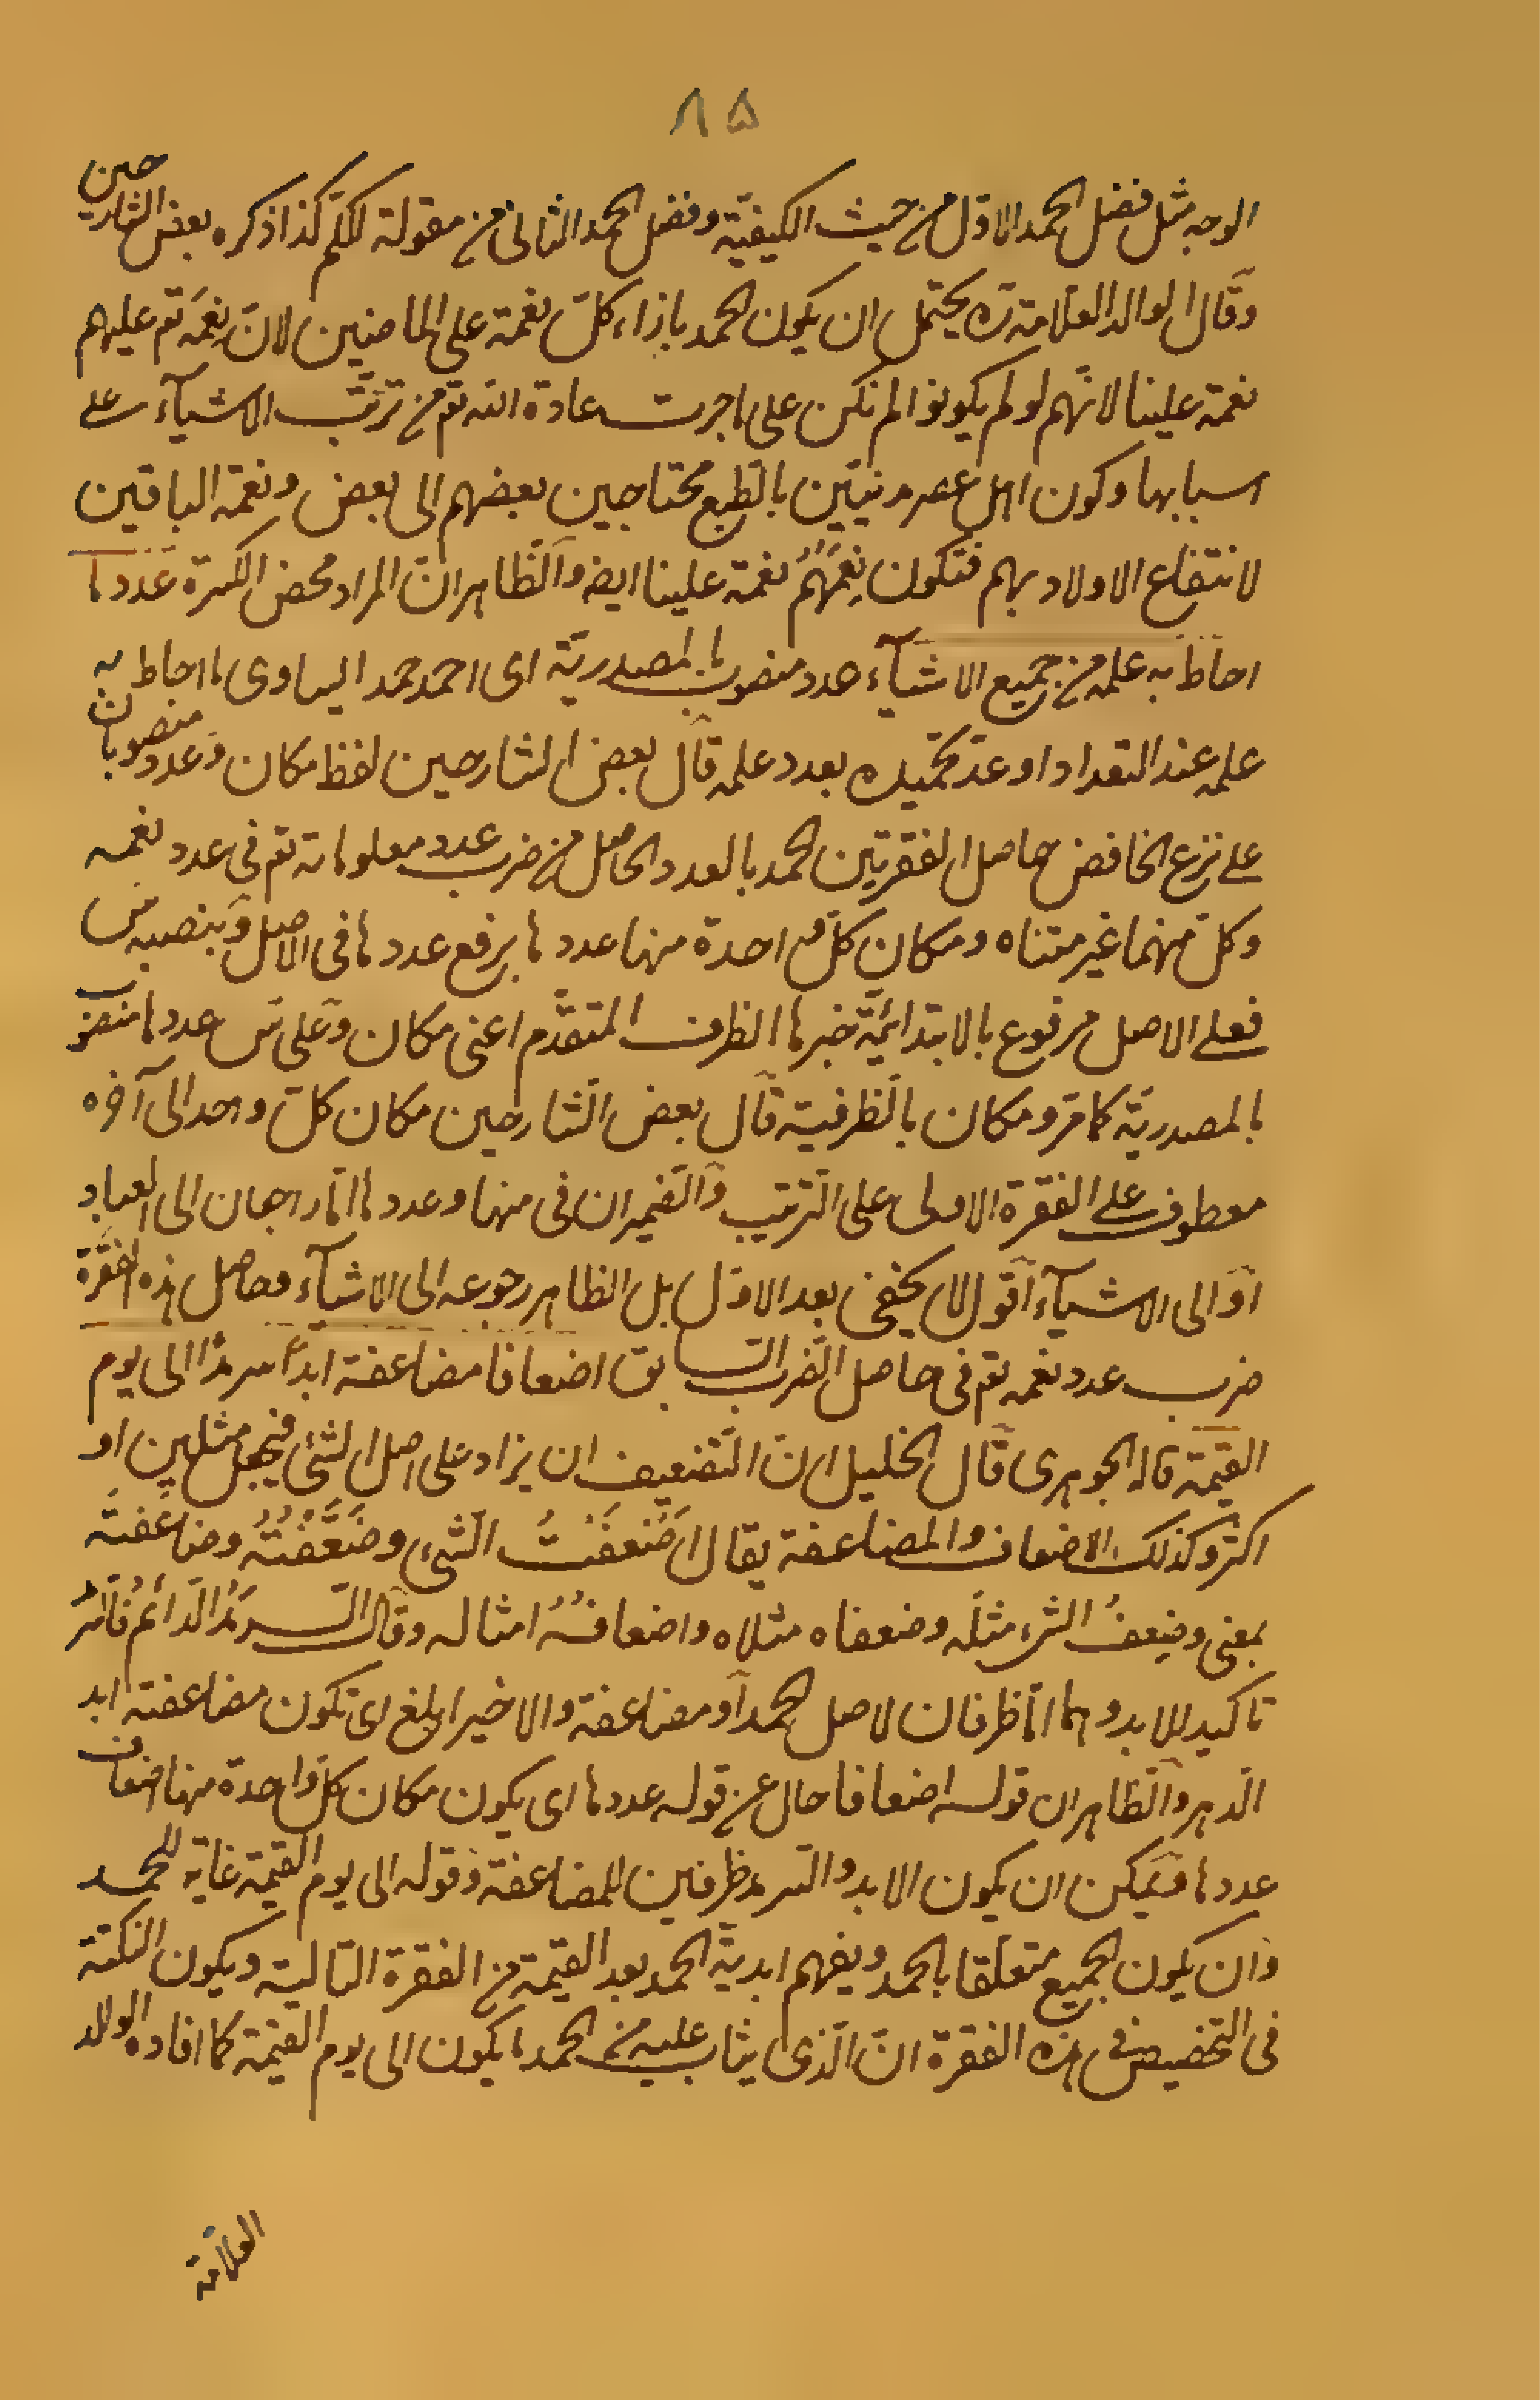 ٨٥
الوجه مثل فضل الحمد الاوّل من حيث الكيفيّة وفضل الحمد الثانى من مقولة الكمّ كذا ذكره بعض الشارحين
وقال الوالد العلامة ره يحتمل ان يكون الحمد بازاء كلّ نعمة على الماضين لانّ نِعَمَه تع عليهم
نعمة علينا لانّهم لو لم يكونوا لم نكن على ما جرت عادة الله تع من ترتّب الاشيآء على
اسبابها وكون اهل عصر مدنيّين بالطبع محتاجين بعضهم الى بعض ونعمة الباقين
لانتفاع الاولاد بهم فتكون نِعَمُهُم نعمة علينا ايضا والظاهر انّ المراد محض الكثرة عَدَدَ ما
احاطَ به علمه من جميع الاشيآء عدد منصوب بالمصدريّة اى احمد حمدا يساوى ما احاط به
علمه عند التعداد او عدّ تحميده بعدد علمه قال بعض الشارحين لفظ مكان وعدد منصوبان
على نزع الخافض حاصل الفقرتين الحمد بالعدد الحاصل من ضرب عدد معلوماته تع فى عدد نعمه
وكلّ منهما غير متناه ومكان كلّ واحدة منها عددها برفع عددها فى الاصل وبنصبه س
فعلى الاصل مرفوع بالابتدائيّة خبرها الظرف المتقدّم اعنى مكان وعلى س عددها منصوب
بالمصدريّة كما مرّ ومكان بالظرفية قال بعض الشارحين مكان كلّ واحد الى آخره
معطوف على الفقرة الاولى على الترتيب والضميران فى منها وعددها امّا راجعان الى العباد
او الى الاشيآء اقول لا يخفى بعد الاوّل بل الظاهر رجوعه الى الاشيآء وحاصل هذه الفقرة
ضرب عدد نعمه تع فى حاصل الضرب السابق اضعافا مضاعفة ابداً سرمدا الى يوم
القيمة قال الجوهرى قال الخليل انّ التضعيف ان يزاد على اصل الشئ فيجعل مثلين او
اكثر وكذلك الاضعاف والمضاعفة يقال اَضْعَفْتُ الشئ وضَعَّفْتُهُ وضاعَفتُه
بمعنى وضِعفُ الشئ مثلَه وضعفاه مثلاه واضعافُهُ امثاله وقال السرمَدُ الدائم فالسرمد
تاكيد للابد وهما امّا ظرفان لاصل الحمد او مضاعفة والاخير ابلغ اى تكون مضاعفته ابد
الدهر والظاهر ان قوله اضعافا حال عن قوله عددها اى يكون مكان كلّ واحدة منها اضعاف
عددها ويمكن ان يكون الابد والسرمد ظرفين للمضاعفة وقوله الى يوم القيمة غاية للحمد
وان يكون الجميع متعلّقا بالحمد ويفهم ابدية الحمد بعد القيمة من الفقرة التالية ويكون النكتة
فى التخصيص فى هذه الفقرة انّ الّذى يثاب عليه من الحمد ما يكون الى يوم القيمة كما افاده الوالد
العلامة